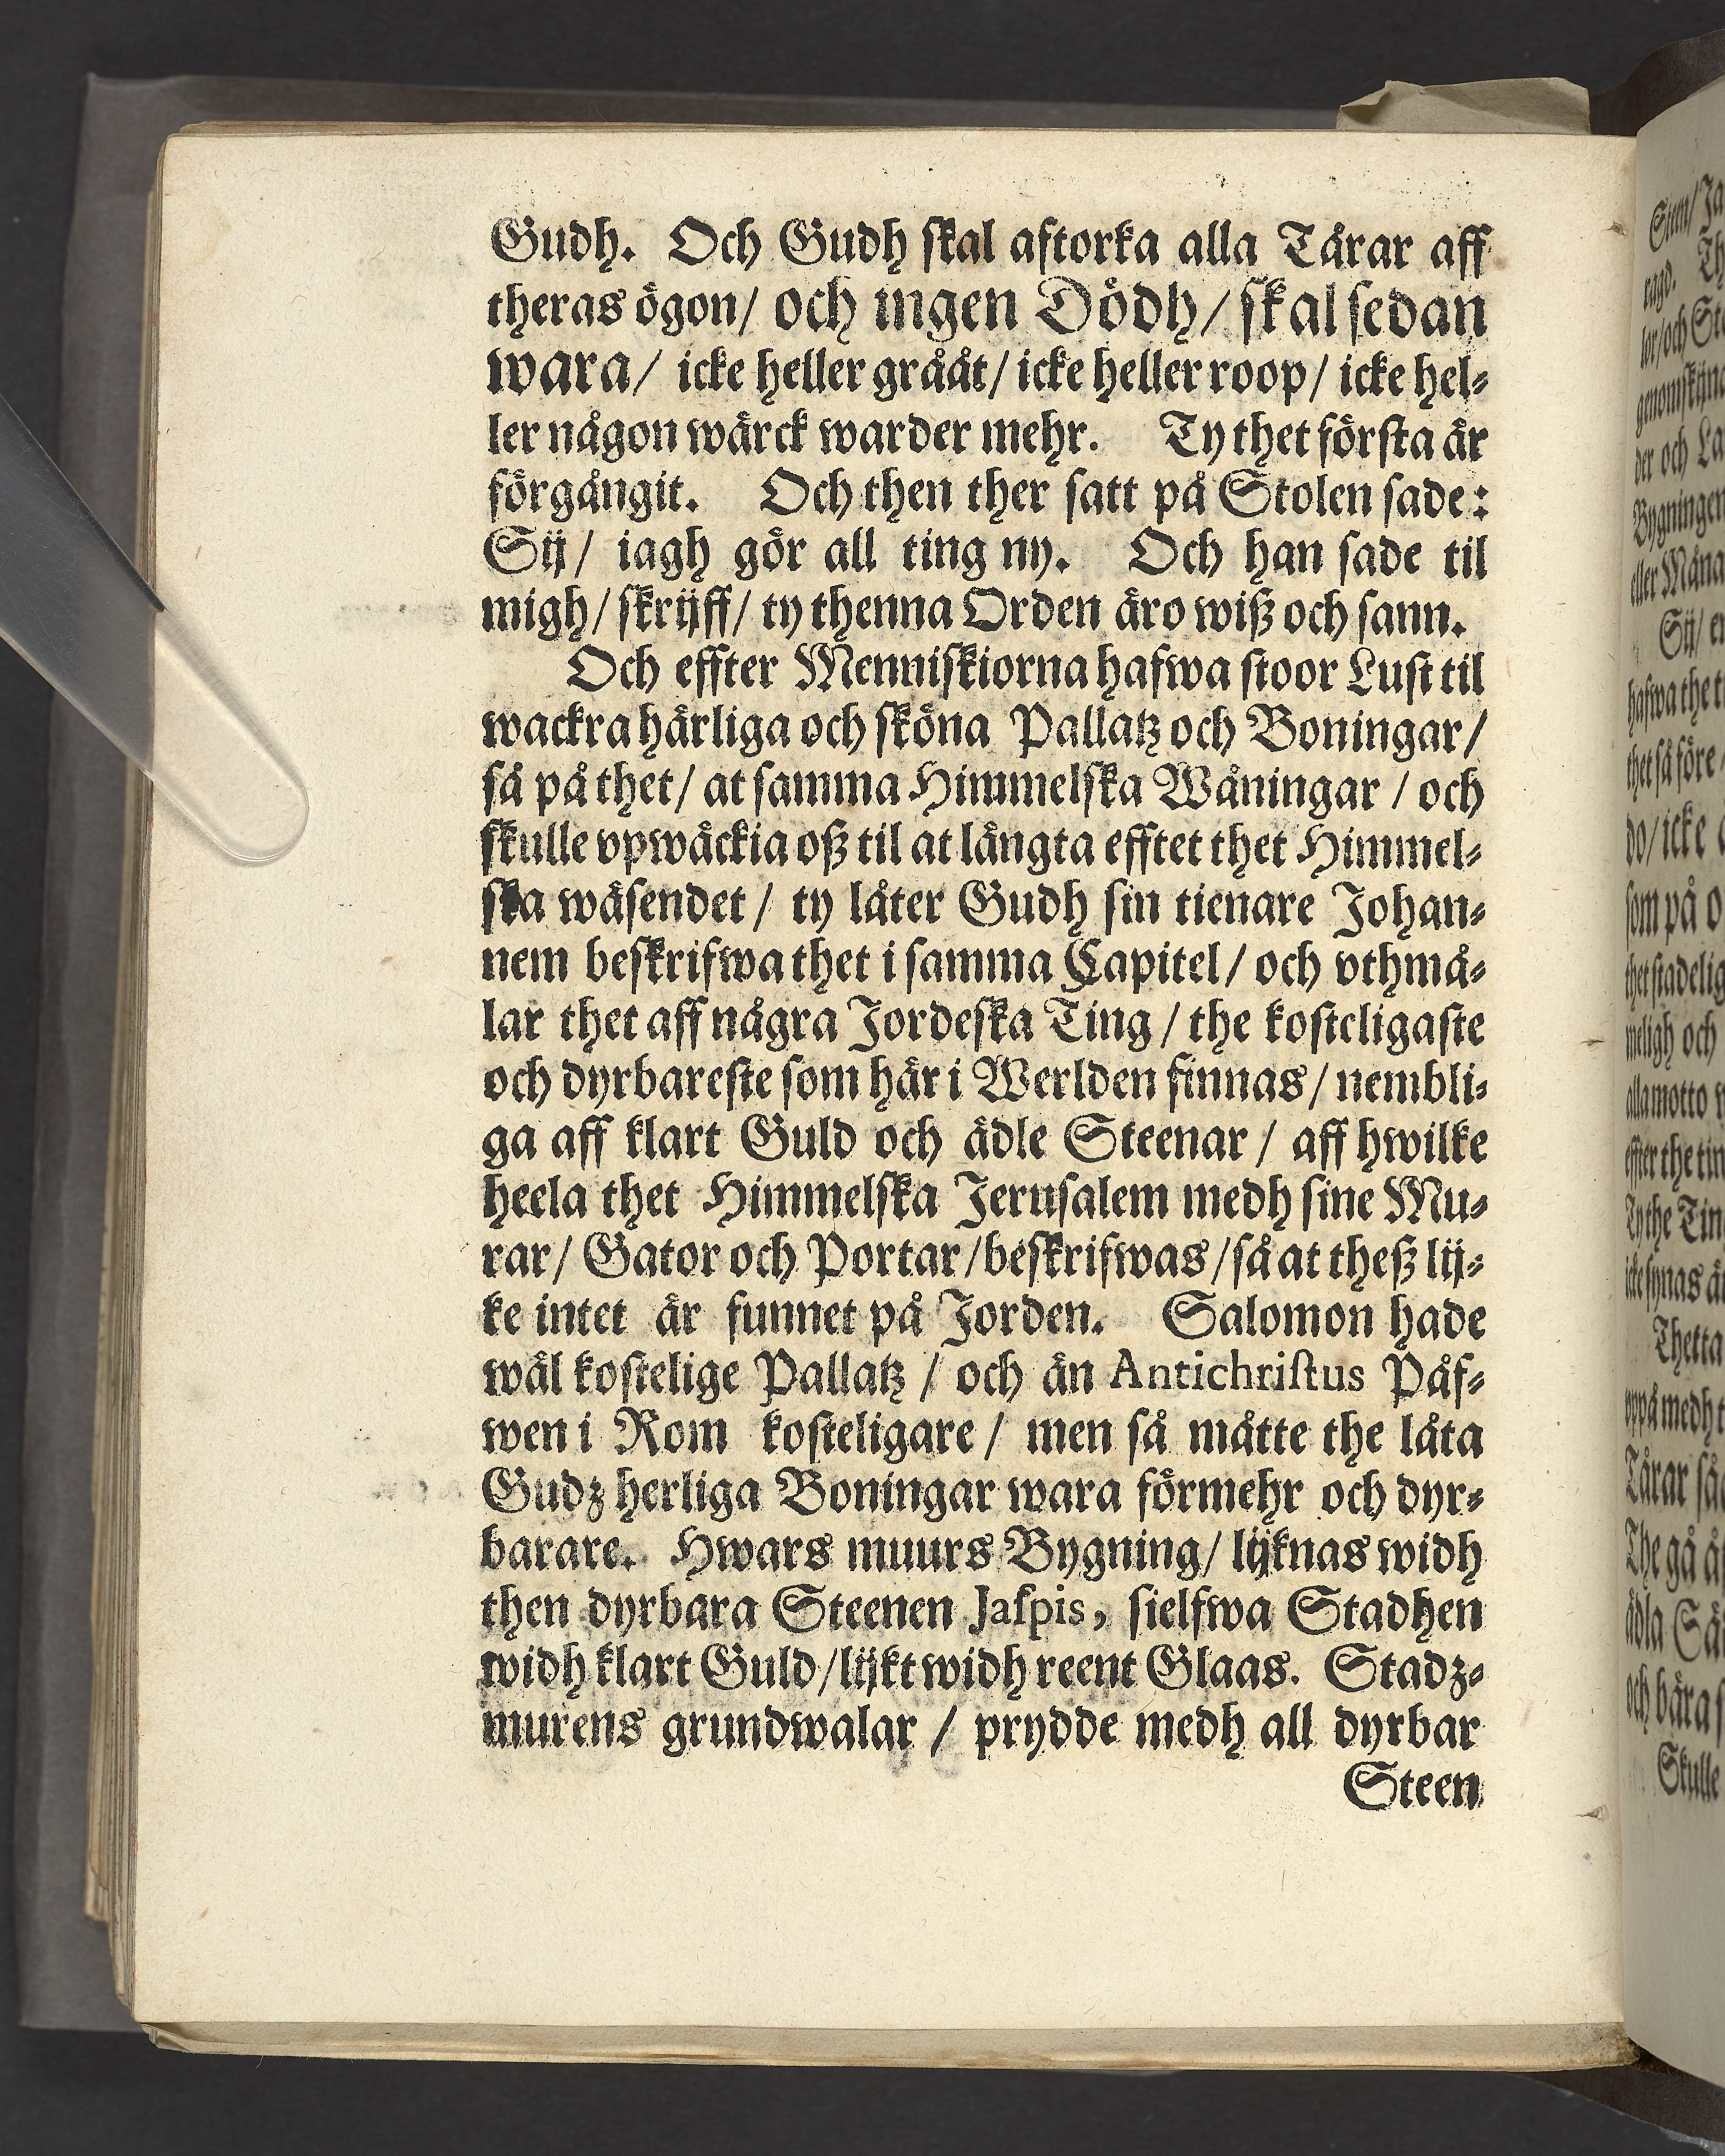 Gudh. Och Gudh skal aftorka alla Tårar aff
theras ögon/ och ingen Dödh/ skal sedan
wara/ icke heller grååt/ icke heller roop/ icke hel-
ler någon wärck warder mehr. Ty thet första är
förgångit. Och then ther satt på Stolen sade:
Sij/ iagh gör all ting ny. Och han sade til
migh/ skrijff/ ty thenna Orden äro wiß och sann.
Och effter Menniskiorna hafwa stoor Lust til
wackra härliga och sköna Pallatz och Boningar/
så på thet/ at samma Himmelska Wåningar / och
skulle vpwäckia oß til at långta efftet thet Himmel-
ska wäsendet / ty låter Gudh sin tienare Johan-
nem beskrifwa thet i samma Capitel/ och vthmå-
lar thet aff några Jordeska Ting / the kosteligaste
och dyrbareste som här i Werlden finnas/ nembli-
ga aff klart Guld och ädle Steenar / aff hwilke
heela thet Himmelska Jerusalem medh sine Mu-
rar/ Gator och Portar/beskrifwas/så at theß lij-
ke intet är funnet på Jorden. Salomon hade
wäl kostelige Pallatz / och än Antichristus Påf-
wen i Rom kosteligare / men så måtte the låta
Gudz herliga Boningar wara förmehr och dyr-
barare. Hwars muurs Bygning/ lijknas widh
then dyrbara Steenen Jaspis, sielfwa Stadhen
widh klart Guld/lijkt widh reent Glaas. Stadz-
murens grundwalar / prydde medh all dyrbar
Steen